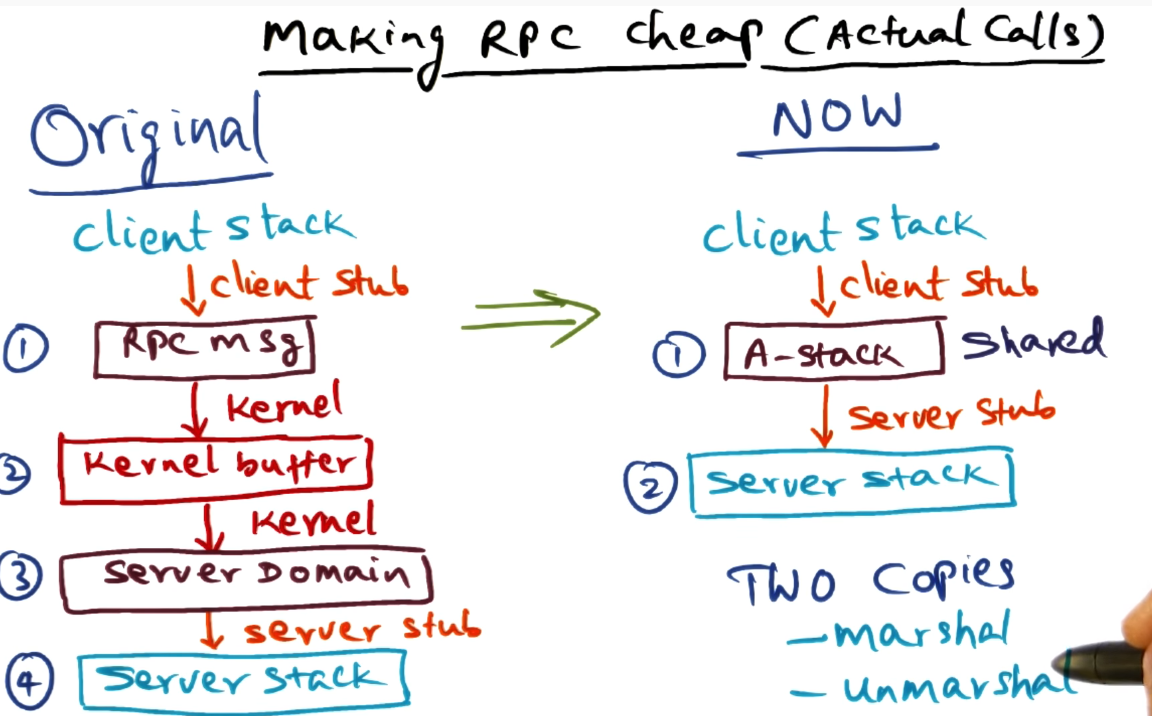 Making RPC cheap (Actual Calls)
Original
client stack
client stub
① RPC msg
Kernel
② Kernel buffer
Kernel
③ Server Domain
server stub
④ Server stack
NOW
client stack
client stub
① A-stack shared
server stub
② server stack
TWO copies
- marshal
- unmarshal